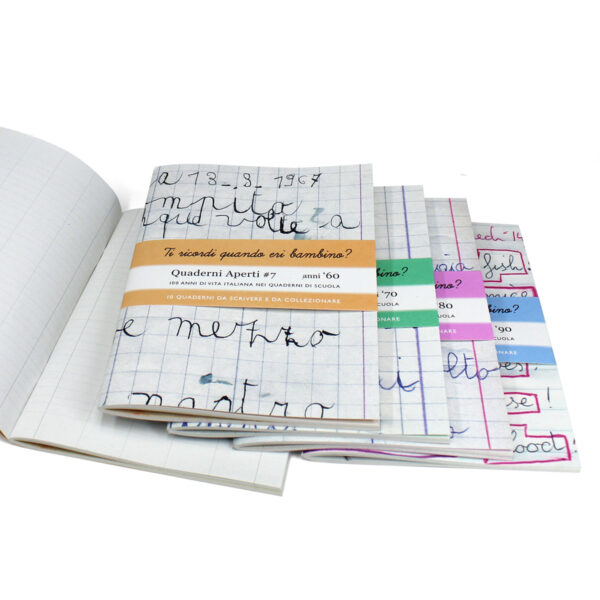 a 13-9-1967
mpito
qud volte a
Ti ricordi quando eri bambino?
Quaderni Aperti #7 anni '60
100 ANNI DI VITA ITALIANA NEI QUADERNI DI SCUOLA
10 QUADERNI DA SCRIVERE E DA COLLEZIONARE
e mezzo
bino?
'70
CUOLA
ONARE
i
bino?
'80
CUOLA
ONARE
lto
edì 14
fish!
bino?
'90
SCUOLA
ONARE
es!
se!
lood!